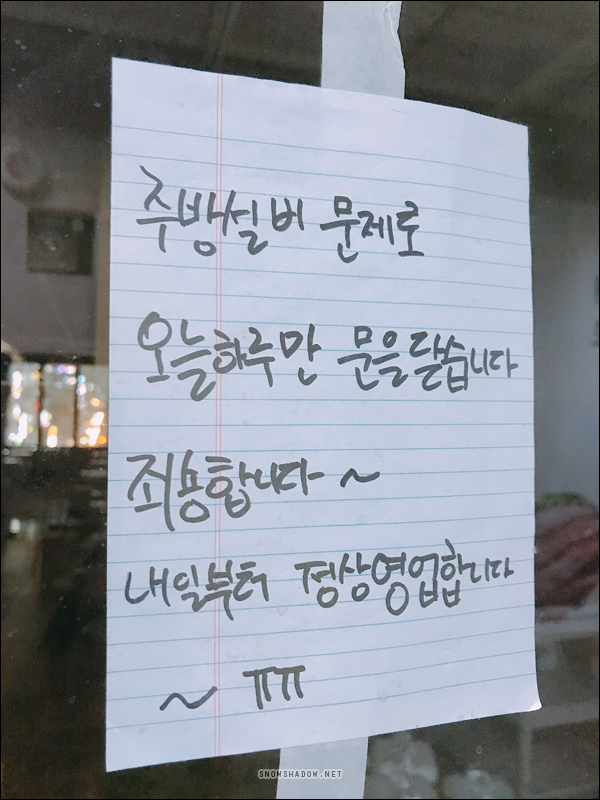 주방설비 문제로
오늘하루만 문을닫습니다
죄송합니다~
내일부터 정상영업합니다
~ ㅠㅠ
SNOWSHADOW.NET